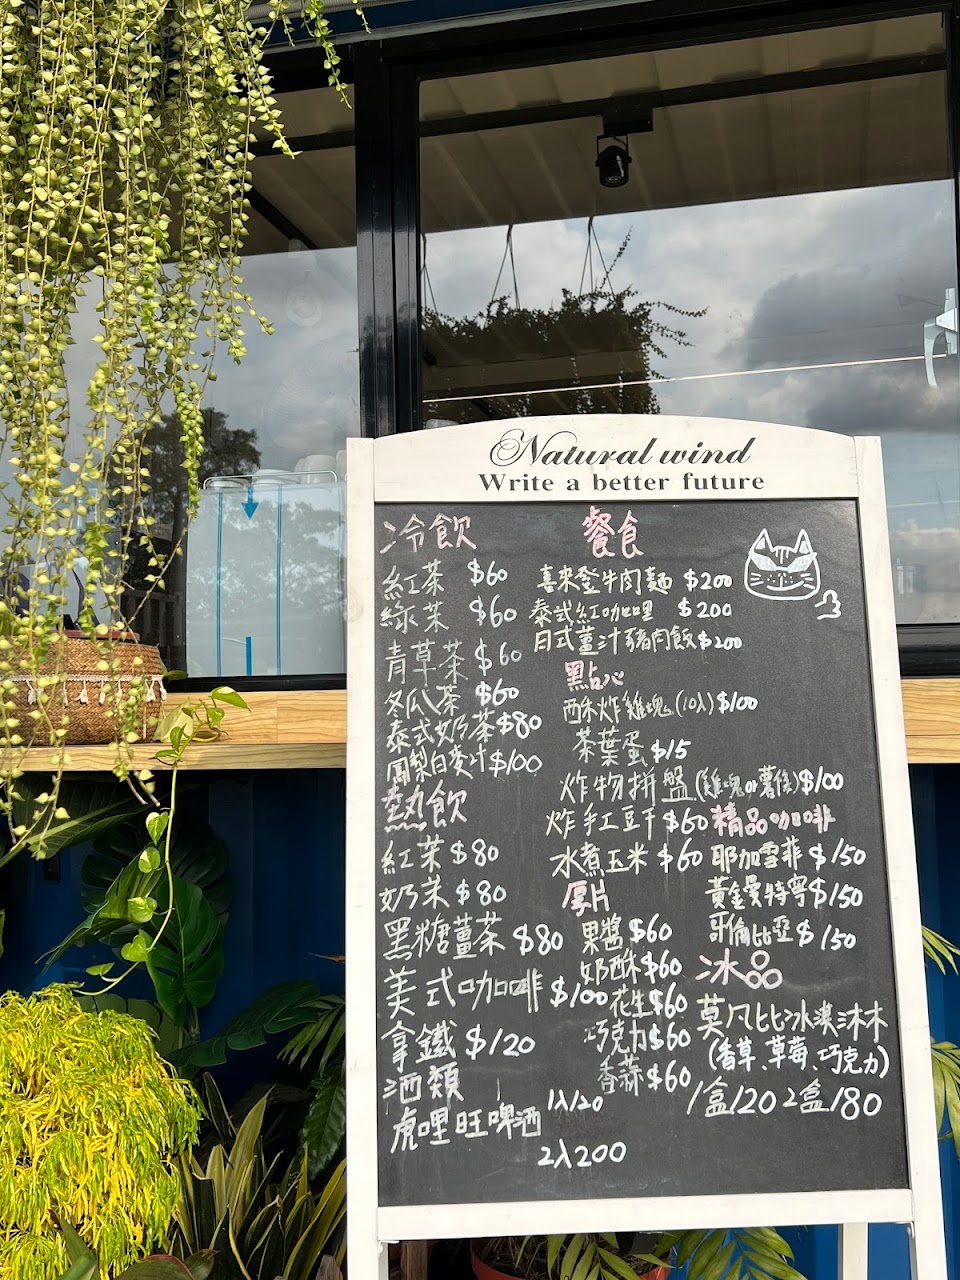 Natural wind
Write a better future
冷飲
紅茶 $60
綠茶 $60
青草茶 $60
冬瓜茶 $60
泰式奶茶 $80
鳳梨百麥汁 $100
熱飲
紅茶 $80
奶茶 $80
黑糖薑茶 $80
美式咖啡 $100
拿鐵 $120
酒類
虎哩旺啤酒
1入120
2入200
餐食
喜來登牛肉麵 $200
泰式紅咖哩 $200
日式薑汁豬肉飯 $200
點心
酥炸雞塊(10入) $100
茶葉蛋 $15
炸物拼盤(雞塊or薯條) $100
炸手工豆干 $60
水煮玉米 $60
厚片
果醬 $60
奶酥 $60
花生 $60
巧克力 $60
香蒜 $60
精品咖啡
耶加雪菲 $150
黃金曼特寧 $150
哥倫比亞 $150
冰品
莫凡比冰淇淋
(香草、草莓、巧克力)
1盒120 2盒180